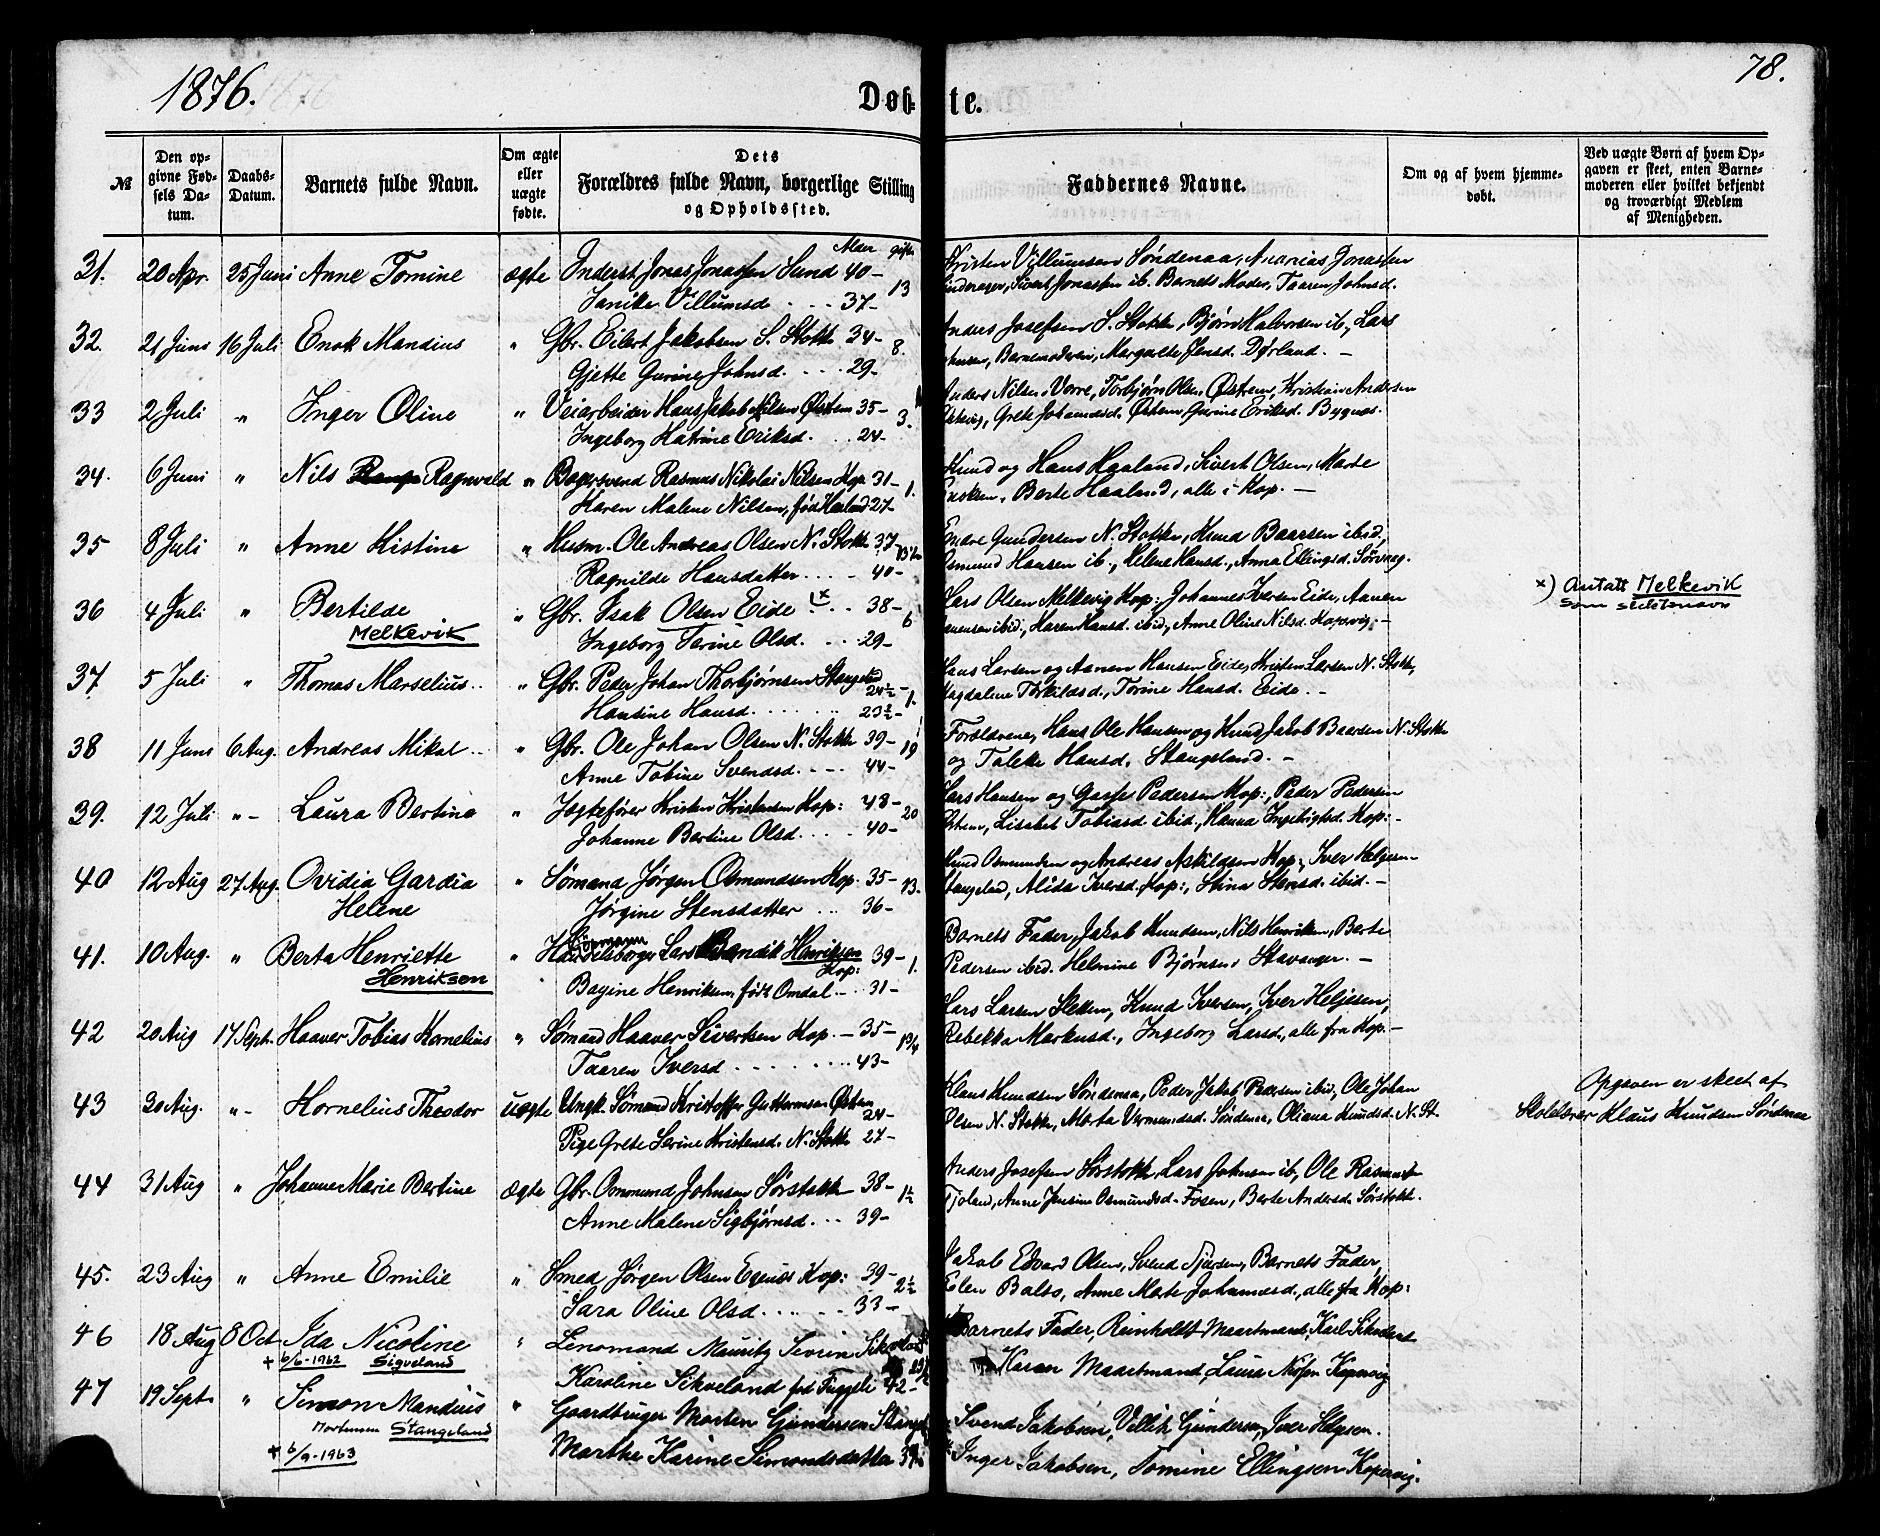 1876.
78.
Døb-
te.
№
Den op-
givne Fød-
sels Da-
tum.
Daabs-
Datum.
Barnets fulde Navn.
Om ægte
eller
uægte
fødte.
Dets
Forældres fulde Navn, borgerlige Stilling
og Opholdssted.
Faddernes Navne.
Om og af hvem hjemme-
døbt.
Ved uægte Børn af hvem Op-
gaven er skeet, enten Barne-
moderen eller hvilket bekjendt
og troværdigt Medlem
af Menigheden.
Alder gifte
31. 20 Apr. 25 Juni Anne Tomine ægte Inderst Jonas Jonassen Sund 40- 13
Janike Villumsd 37-
Kristen Villumsen Søndenaa, Jonassen
Sivert Jonassen ib. Barnets Moder, Taaren Johnsd.
32. 21 Juni 16 Juli Enok Mandius " Gbr. Eilert Jakobsen S. Stokke 34- 8.
Gjette Gurine Johnsd. 29-
Josefsen S. Stokke, Bjørn Halvorsen ib., Lars
Barnemoderen, Margrete Jensd. Dørland. -
33 2 Juli " Inger Oline " Veiarbeider Hans Jakob Nilsen Østem 35- 3.
Ingeborg Katrine Eriksd. 24-
Anders Nilsen Vorre, Torbjørn Olsen Østem, Kristian Andersen
Grete Johannesd. Østem, Gurine Eriksd. Bygnes.
34. 6 Juni " Nils Ragnvald " Bagersvend Rasmus Nikolai Nilsen Kop. 31- 1.
Karen Malene Nilsen, født Haaland 27-
Knud og Hans Haaland, Sivert Olsen, Marte
Berte Haaland, alle i Kop. -
35 8 Juli " Anne Kistine " Husm. Ole Andreas Olsen N. Stokke 37-
Ragnilde Hansdatter 40-
Endre Gundersen N. Stokke, Knud Baarsen ibid,
Osmund Hansen ib., Helene Hansd., Anna Ellingsd. Sørvaag.
36 4 Juli " Bertilde " Gbr. Isak Olsen Eide x 38- 6
Melkevik
Ingeborg Serine Olsd. 29-
Lars Olsen Melkevig Kop:, Johannes Iversen Eide, Aanen
ibid., Karen Hansd. ibid, Anne Oline Nilsd. Kopervig. -
x) Antatt Melkevik
som slektsnavn
37 5 Juli " Thomas Marselius " Gbr. Peder Johan Thorbjørnsen Stangeland 24½- 1.
Hansine Hansd. 23½-
Hans Larsen og Aanen Hansen Eide, Kristen Larsen N. Stokke,
Magdalene Torkildsd., Torine Hansd. Eide. -
38 11 Juni 6 Aug. Andreas Mikal " Gbr. Ole Johan Olsen N. Stokke 39- 19
Anne Tobine Svendsd. 44-
Forældrene, Hans Ole Hansen og Knud Jakob Baardsen N. Stokke
og Taleke Hansd. Stangeland. -
39. 12 Juli " - Laura Bertine " Jægtefører Kristen Kristensen Kop: 48- 20
Johanne Bertine Olsd. 40-
Lars Hansen og Pedersen Kop:, Peder Pedersen
Østem, Lisabet Tobiasd ibid., Hanna Kop: -
40 12 Aug 27 Aug. Ovidia Gardia " Sømand Jørgen Osmundsen Kop. 35- 13.
Helene
Jørgine Stensdatter 36-
Knud Osmundsen og Andreas Askildsen Kop:, Iver Helgesen
Stangeland, Alida Iversd. Kop:, Stina Stensd. ibid. -
41. 10 Aug. " Berta Henriette " Handelsborger Lars Bendik Henriksen 39- 1.
Kop:
Henriksen
Bagine Henriksen, født Omdal 31-
Barnets Fader, Jakob Knudsen, Nils Henriksen, Berte
Pedersen ibid. Helmine Bjørnsen Stavanger. -
42 20 Aug 17 Sept. Haaver Tobias Kornelius " Sømand Haaver Sivertsen Kop. - 35-
Taaren Iversd 43-
Lars Larsen Sletten, Knud Iversen, Iver Helgesen,
Rebekka Markusd., Ingeborg Larsd., alle fra Kop. -
43 30 Aug. " - Kornelius Theodor uægte Ungk. Sømand Kristoffer Guttormsen Østem
24-
Pige Grete Serine Kristensd. N. Stokke 27-
Klaus Knudsen Søndenaa, Peder Jakob Pedersen ibid, Ole Johan
Olsen N. Stokke, Marta Søndenaa, Oliana Knudsd. N. St.
Opgaven er skeet af
Skolelærer Klaus Knudsen Søndenaa
44 31 Aug " Johanne Marie Bertine ægte Gbr. Osmund Johnsen Sørstokke 38- 1½
Anne Malene Sigbjørnsd. 39-
Anders Josefsen Sørstokke, Lars Johnsen ib, Ole Rasmusen
Anne Jensine Osmundsd. Fosen, Berte Andersd. Sørstokke.
45. 23 Aug " Anne Emilie " Smed Jørgen Olsen Egenes Kop: 39- 2½
Sara Oline Olsd. 33-
Jakob Edvard Olsen, Svend Barnets Fader,
Elen Anne Marte Johannesd., alle fra Kop:
46 18 Aug 8 Oct. Ida Nicoline " Lensmand Mauritz Severin Sikveland
+ 6/6-1962 Sigveland
Karoline Sikveland fød Tuggeli 42-
Barnets Fader, Reinholdt Maartmand, Karl Sikveland
Karen Maartmand, Laura Kopervig
47 19 Sept " Simon Mandius " Gaardbruger Morten Gundersen
Mortensen Stangeland
+ 6/9-1963
Marthe Karine Simonsdatter
Svend Jakobsen, Villik Gundersen, Iver Helgesen.
Inger Jakobsen, Tomine Ellingsen Kopervig.